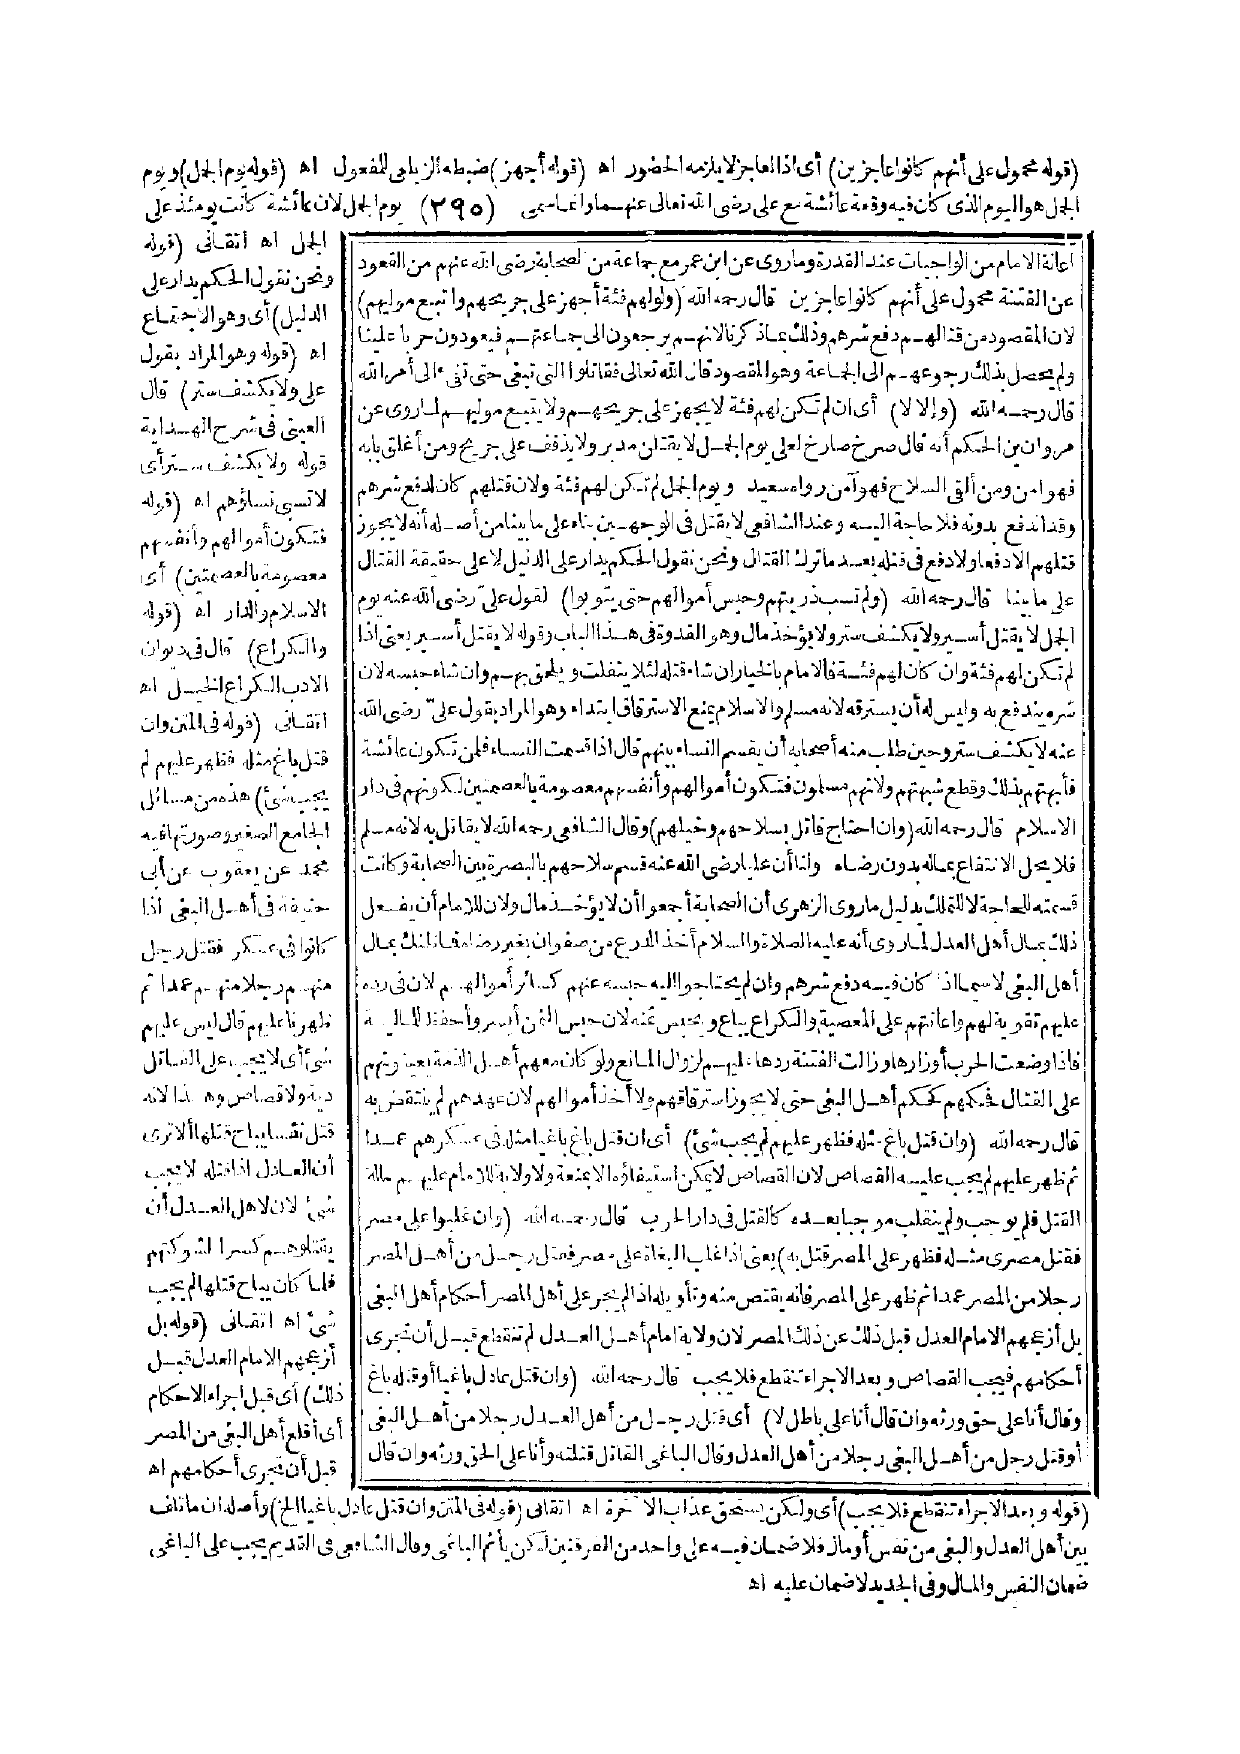 (قوله محمول على أنهم كانوا عاجزين) أى اذ العاجز لا يلزمه الحضور اه (قوله أجهز) ضبطه الزيلعى للمفعول اه (قوله يوم الجمل) ويوم
الجمل هو اليوم الذى كان فيه وقعة عائشة مع على رضى الله تعالى عنهما وانما سمى (٢٩٥) يوم الجمل لان عائشة كانت يومئذ على
الجمل اه أتقانى (قوله
ونحن نقول الحكم يدار على
الدليل) أى وهو الاجتماع
اه (قوله وهو المراد بقول
على ولا يكشف ستر) قال
العينى فى شرح الهداية
قوله ولا يكشف ستر أى
لا تسبى نساؤهم اه (قوله
فتكون أموالهم وأنفسهم
معصومة بالعصمتين) أى
الاسلام والدار اه (قوله
والكراع) قال فى ديوان
الادب الكراع الخيل اه
اتقانى (قوله فى المتن وان
قتل باغ مثله فظهر عليهم لم
يجب شئ) هذه من مسائل
الجامع الصغير وصورتها فيه
محمد عن يعقوب عن أبى
حنيفة فى أهل البغى اذا
كانوا فى عسكر فقتل رجل
منهم رجلا منهم عمدا ثم
ظهرنا عليهم قال ليس عليهم
شئ أى لا يجب على القاتل
دية ولا قصاص وهذا لانه
قتل نفسا يباح قتلها ألا ترى
أن العادل اذا قتله لا يجب
شئ لان لاهل العدل أن
يقتلوهم كسرا لشوكتهم
فلما كان يباح قتلها لم يجب
شئ اه اتقانى (قوله بل
أزعجهم الامام العدل قبل
ذلك) أى قبل اجراء الاحكام
أى أقلع أهل البغى من المصر
قبل أن تجرى أحكامهم اه
اعانة الامام من الواجبات عند القدرة وما روى عن ابن عمر مع جماعة من الصحابة رضى الله عنهم من القعود
عن الفتنة محمول على أنهم كانوا عاجزين قال رحمه الله (ولو لهم فئة أجهز على جريحهم واتبع موليهم)
لان المقصود من قتالهم دفع شرهم وذلك بما ذكرنا لانهم يرجعون الى جماعتهم فيعودون حربا علينا
ولم يحصل بذلك رجوعهم الى الجماعة وهو المقصود قال الله تعالى فقاتلوا التى تبغى حتى تفىء الى أمر الله
قال رحمه الله (وإلا لا) أى ان لم تكن لهم فئة لا يجهز على جريحهم ولا يتبع موليهم لما روى عن
مروان بن الحكم أنه قال صرخ صارخ لعلى يوم الجمل لا يقتلن مدبر ولا يذفف على جريح ومن أغلق بابه
فهو امن ومن ألقى السلاح فهو آمن رواه سعيد ويوم الجمل لم تكن لهم فئة ولان قتلهم كان لدفع شرهم
وقد اندفع بدونه فلا حاجة اليه وعند الشافعى لا يقتل فى الوجهين بناء على ما بينا من أصله أنه لا يجوز
قتلهم الا دفعا ولا دفع فى قتله بعد ما ترك القتال ونحن نقول الحكم يدار على الدليل لا على حقيقة القتال
على ما بينا قال رحمه الله (ولم تسب ذريتهم وحبس أموالهم حتى يتوبوا) لقول علىّ رضى الله عنه يوم
الجمل لا يقتل أسير ولا يكشف ستر ولا يؤخذ مال وهو القدوة فى هذا الباب وقوله لا يقتل أسير يعنى اذا
لم تكن لهم فئة وان كان لهم فئة فالامام بالخيار ان شاء قتله لئلا يتفلت ويلحق بهم وان شاء حبسه لان
شره يندفع به وليس له أن يسترقه لانه مسلم والاسلام يمنع الاسترقاق ابتداء وهو المراد بقول علىّ رضى الله
عنه لا يكشف ستر وحين طلب منه أصحابه أن يقسم النساء بينهم قال اذا قسمت النساء فلمن تكون عائشة
فأبهتهم بذلك وقطع شبهتهم ولانهم مسلمون فتكون أموالهم وأنفسهم معصومة بالعصمتين لكونهم فى دار
الاسلام قال رحمه الله (وان احتاج قاتل بسلاحهم وخيلهم) وقال الشافعى رحمه الله لا يقاتل به لانه مسلم
فلا يحل الانتفاع بماله بدون رضاه ولنا أن عليا رضى الله عنه قسم سلاحهم بالبصرة بين الصحابة وكانت
قسمته للحاجة لا للتملك بدليل ما روى الزهرى أن الصحابة أجمعوا أن لا يؤخذ مال ولان للامام أن يفعل
ذلك بمال أهل العدل لما روى أنه عليه الصلاة والسلام أخذ الدرع من صفوان بغير رضاه فما ظنك بمال
أهل البغى لا سيما اذا كان فيه دفع شرهم وان لم يحتاجوا اليه حبسه عنهم كسائر أموالهم لان فى رده
عليهم تقوية لهم واعانتهم على المعصية والكراع يباع ويحبس ثمنه لان حبس الثمن أيسر وأحفظ للمالية
فاذا وضعت الحرب أوزارها وزالت الفتنة ردها عليهم لزوال المانع ولو كان معهم أهل الذمة يعينونهم
على القتال فحكمهم كحكم أهل البغى حتى لا يجوز استرقاقهم ولا أخذ أموالهم لان عهدهم لم ينتقض به
قال رحمه الله (وان قتل باغ مثله فظهر عليهم لم يجب شئ) أى ان قتل باغ باغيا مثله فى عسكرهم عمدا
ثم ظهر عليهم لم يجب عليه القصاص لان القصاص لا يمكن استيفاؤه الا بمنعة ولا ولاية للامام عليهم حالة
القتل فلم يوجب ولم ينقلب موجبا بعده كالقتل فى دار الحرب قال رحمه الله (وان غلبوا على مصر
فقتل مصرى مثله فظهر على المصر قتل به) يعنى اذا غلب البغاة على مصر فقتل رجل من أهل المصر
رجلا من المصر عمدا ثم ظهر على المصر فانه يقتص منه وتأويله اذا لم يجر على أهل المصر أحكام أهل البغى
بل أزعجهم الامام العدل قبل ذلك عن ذلك المصر لان ولاية امام أهل العدل لم تنقطع قبل أن تجرى
أحكامهم فيجب القصاص وبعد الاجراء تنقطع فلا يجب قال رحمه الله (وان قتل عادل باغيا أو قتله باغ
وقال أنا على حق ورثه وان قال أنا على باطل لا) أى قتل رجل من أهل العدل رجلا من أهل البغى
أو قتل رجل من أهل البغى رجلا من أهل العدل وقال الباغى القاتل قتلته وأنا على الحق ورثه وان قال
(قوله وبعد الاجراء تنقطع فلا يجب) أى ولكن يستحق عذاب الآخرة اه اتقانى (قوله فى المتن وان قتل عادل باغيا الخ) وأصله ان ما تلف
بين أهل العدل والبغى من نفس أو مال فلا ضمان فيه على واحد من الفريقين لكن يأثم الباغى وقال الشافعى فى القديم يجب على الباغى
ضمان النفس والمال وفى الجديد لا ضمان عليه اه